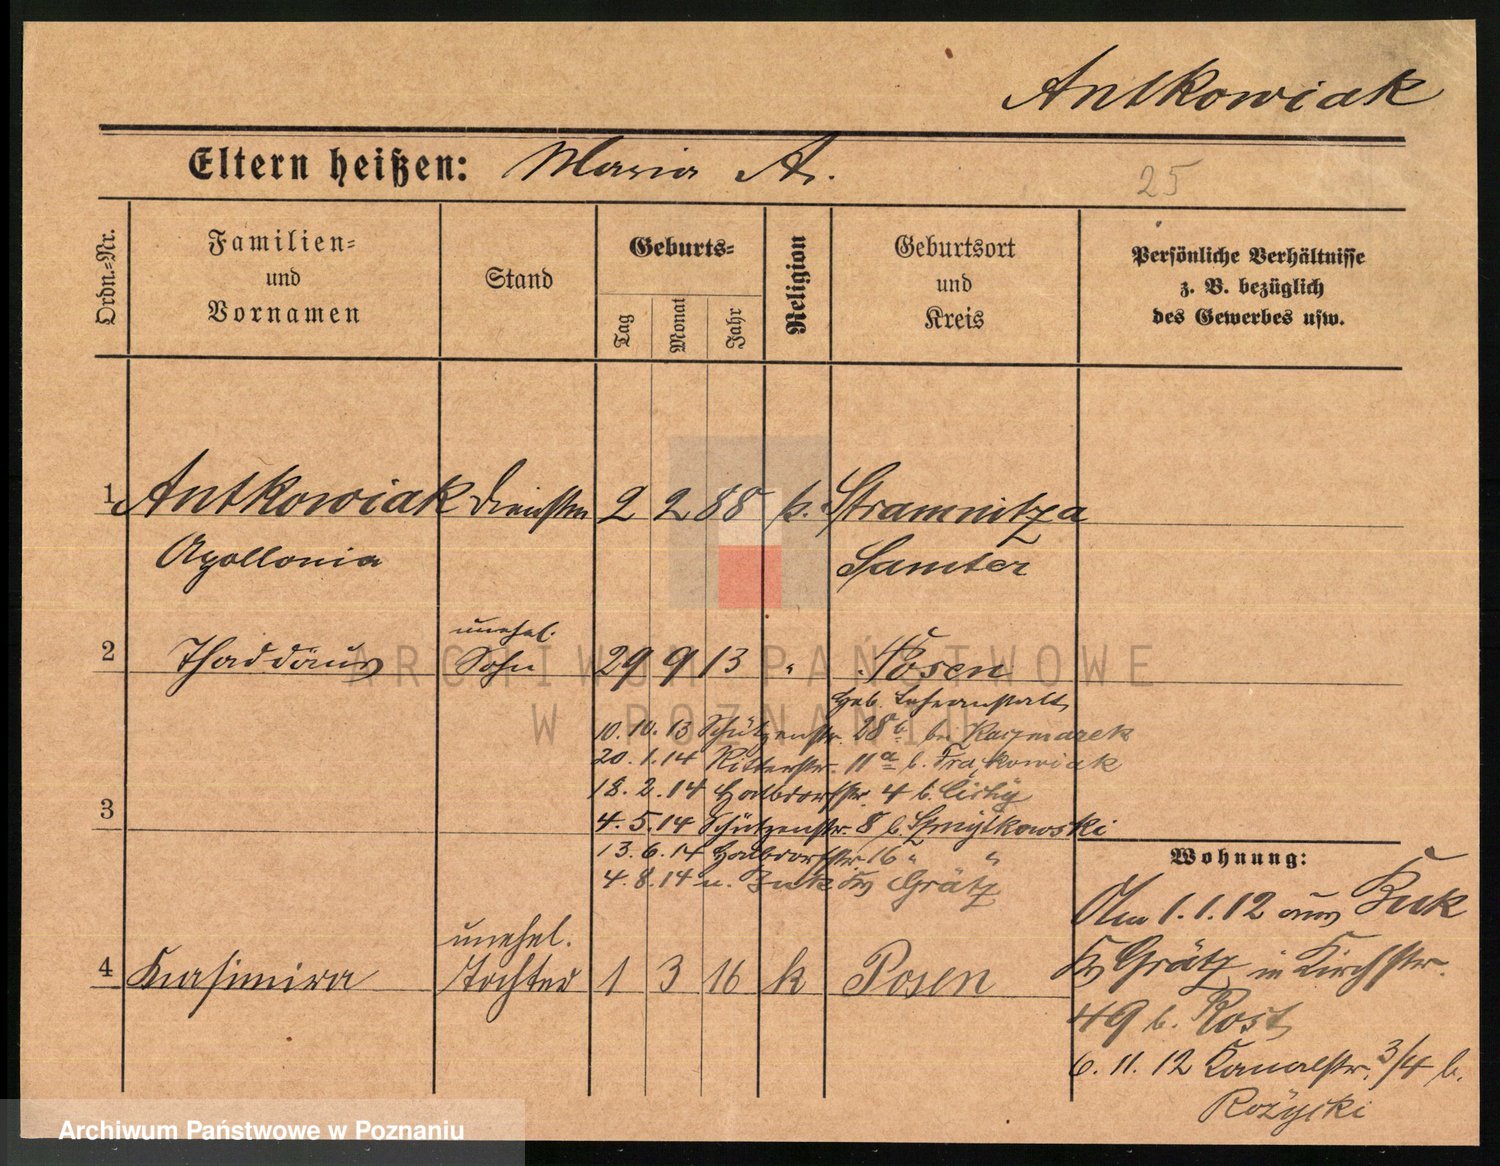 Antkowiak
Eltern heißen: Maria A.
25
Ordn.=Nr.
Familien=
und
Vornamen
Stand
Geburts=
Tag
Monat
Jahr
Religion
Geburtsort
und
Kreis
Persönliche Verhältnisse
z. B. bezüglich
des Gewerbes usw.
1 Antkowiak 2 2 88 k. Stramnitza
Apollonia Samter
unehel.
2 Thaddäus Sohn 29 9 13 " Posen
Heb. Lehranstalt
10. 10. 13 Schützenstr. 28b bei Kaczmarek
20. 1. 14 Ritterstr. 11a b. Frąckowiak
18. 2. 14 Halbdorfstr. 4 b.
3
4. 5. 14 Schützenstr. 8 b. Szmytkowski
13. 6. 14 Halbdorfstr. 16 " "
4. 8. 14 n. Buk Kr Grätz
unehel.
4 Kasimira Tochter 1 3 16 k Posen
Wohnung:
Am 1. 1. 12 aus Buk
Kr Grätz in Kirchstr.
49 b. Rost
6. 11. 12 Kanalstr. 3/4 b.
Rożycki
ARCHIWUM PAŃSTWOWE
W POZNANIU
Archiwum Państwowe w Poznaniu